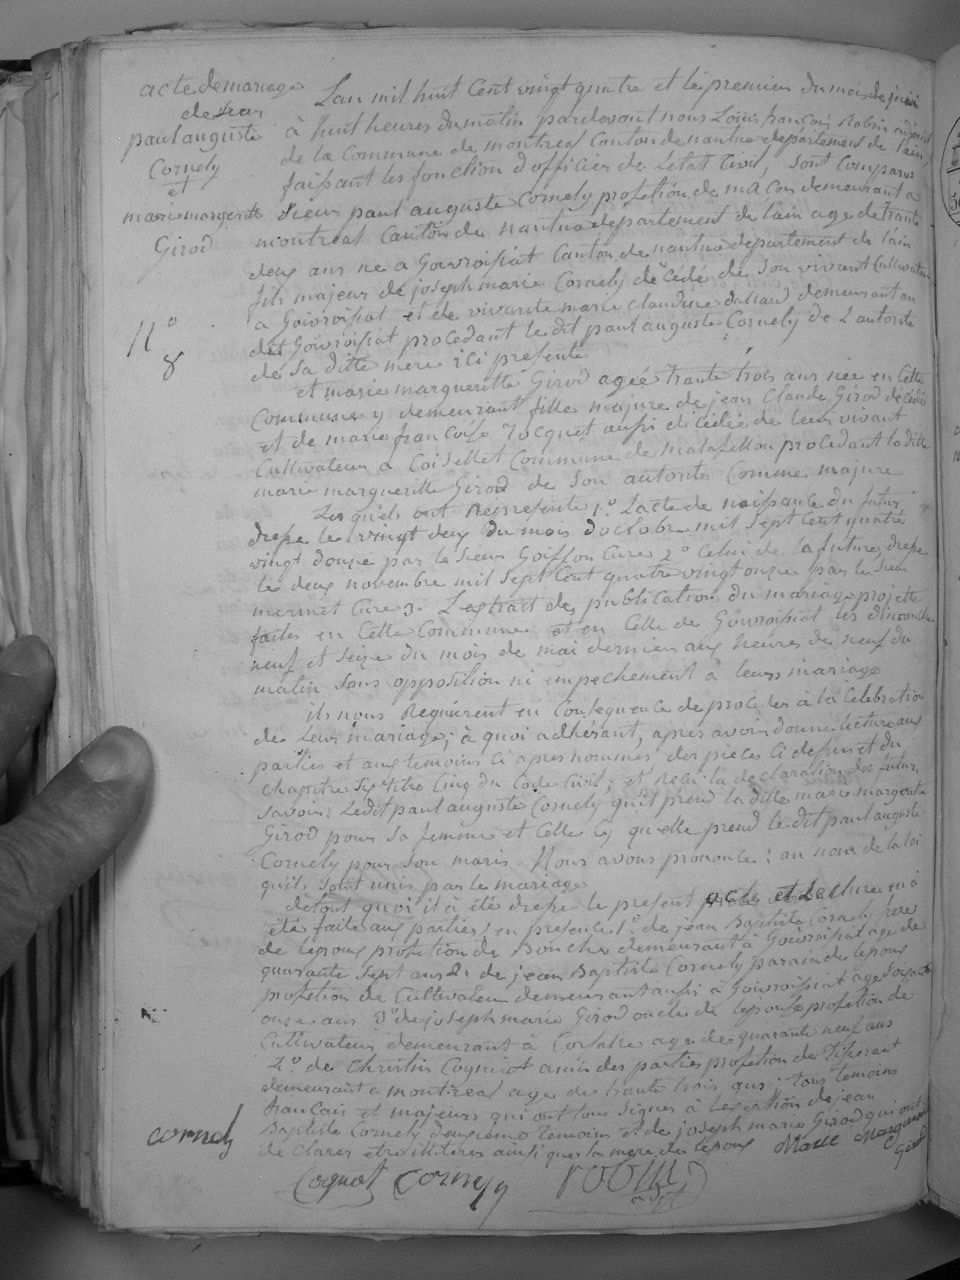 acte de mariage
de jean
paul auguste
Cornely
et
marie margerite
Girod
11
8
L'an mil huit Cent vingt quatre et le premier du mois de juin
à huit heures du matin pardevant nous Louis françois Robin adjoint
de la Commune de montreal Canton de nantua departement de l'ain,
faisant les fonction d'officier de l'état Civil, sont Comparus
Sieur paul auguste Cornely profession de macon demeurant a
montreal Canton de nantua departement de l'ain age de trante
deux ans né a Gouvoissiat Canton de nantua departement de l'ain
fils majeur de joseph marie Cornely décédé de son vivant Cultivateur
a Gouvoissiat et de vivante marie claudine dallaud demeurant au
dit Gouvoissiat procedant le dit paul auguste Cornely de L'autorite
de sa ditte mere ici presente
et marie margueritte Girod agée trante trois ans née en Cette
Commune y demeurant fille majure de jean Claude Girod décédé
et de marie françoise Jocquet aussi décédée de leur vivant
Cultivateur a Coisellet Commune de matafellon procedant la ditte
marie margueritte Girod de son autorité Comme majure
Lesquels ont Represente 1.º L'acte de naissance du futur
dressé le vingt deux du mois d'octobre mil sept Cent quatre
vingt douze par le Sieur Goiffon Cure 2º Celui de la future, dressé
le deux novembre mil sept Cent quatre vingt onze par le Sieur
mermet Cure 3. L'extrait des publication du mariage projetté
faites en Cette Commune et en Celle de Gouvoissiat les dimanche
neuf et seize du mois de mai dernier aux heures de neuf du
matin sans opposition ni empechement à leurs mariage
ils nous Requièrent en Consequence de proceder à la Celebration
de Leur mariage; à quoi adhérant, apres avoir donné lecture aux
parties et aux temoins Ci apres nommés des pieces Ci dessus et du
chapitre Six titre Cinq du Code Civil; et Reçu la declaration des futur,
Savoir: Ledit paul auguste Cornely qu'il prend la ditte marie margerite
Girod pour Sa femme et Celle Cy qu'elle prend le dit paul auguste
Cornely pour son maris. Nous avons prononcé: au nom de la loi
qu'ils sont unis par le mariage
de tout quoi il à été dressé le present acte et Lecture en à
été faite aux parties, en presence 1º de jean Baptiste Cornely frere
de l'epoux profession de Boucher demeurant à Gouvoissiat age de
quarante sept ans 2º de jean Baptiste Cornely parain de l'epoux
profession de Cultivateur demeurant aussi à Gouvoissiat age soixante
onze ans 3º de joseph marie Girod oncle de l'epouse profession de
Cultivateur demeurant à age de quarante neuf ans
4.º de Christin Cogniot amis des parties profession de tisserant
demeurant a montreal age de trante trois ans; tous temoins
francais et majeurs qui ont tous signes à l'exeption de jean
Baptiste Cornely deuxième temoins et de joseph marie Girod qui ont
declarer etre illitérés ainsi que la mere de l'epoux Marie Marguerite
Girod
cornely
Cognot Cornely robin
adjt